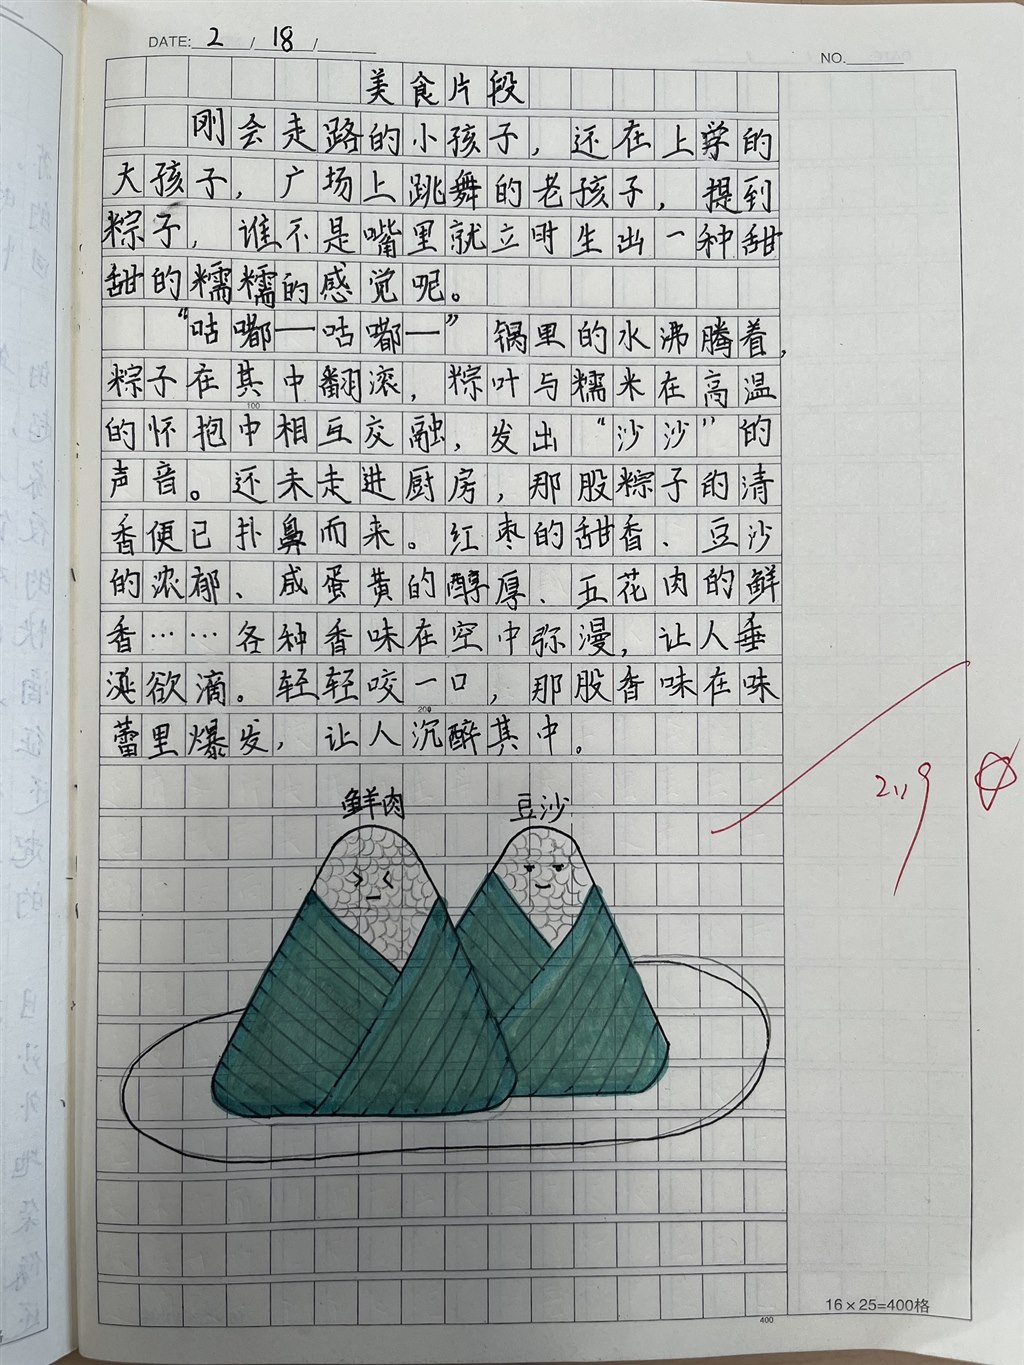 DATE: 2 / 18 /
NO.
美食片段
刚会走路的小孩子，还在上学的
大孩子，广场上跳舞的老孩子，提到
粽子，谁不是嘴里就立时生出一种甜
甜的糯糯的感觉呢。
“咕嘟一咕嘟一”锅里的水沸腾着，
粽子在其中翻滚，粽叶与糯米在高温
100
的怀抱中相互交融，发出“沙沙”的
声音。还未走进厨房，那股粽子的清
香便已扑鼻而来。红枣的甜香、豆沙
的浓郁、咸蛋黄的醇厚、五花肉的鲜
香……各种香味在空中弥漫，让人垂
涎欲滴。轻轻咬一口，那股香味在味
200
蕾里爆发，让人沉醉其中。
鲜肉 豆沙
2.19
16×25=400格
400